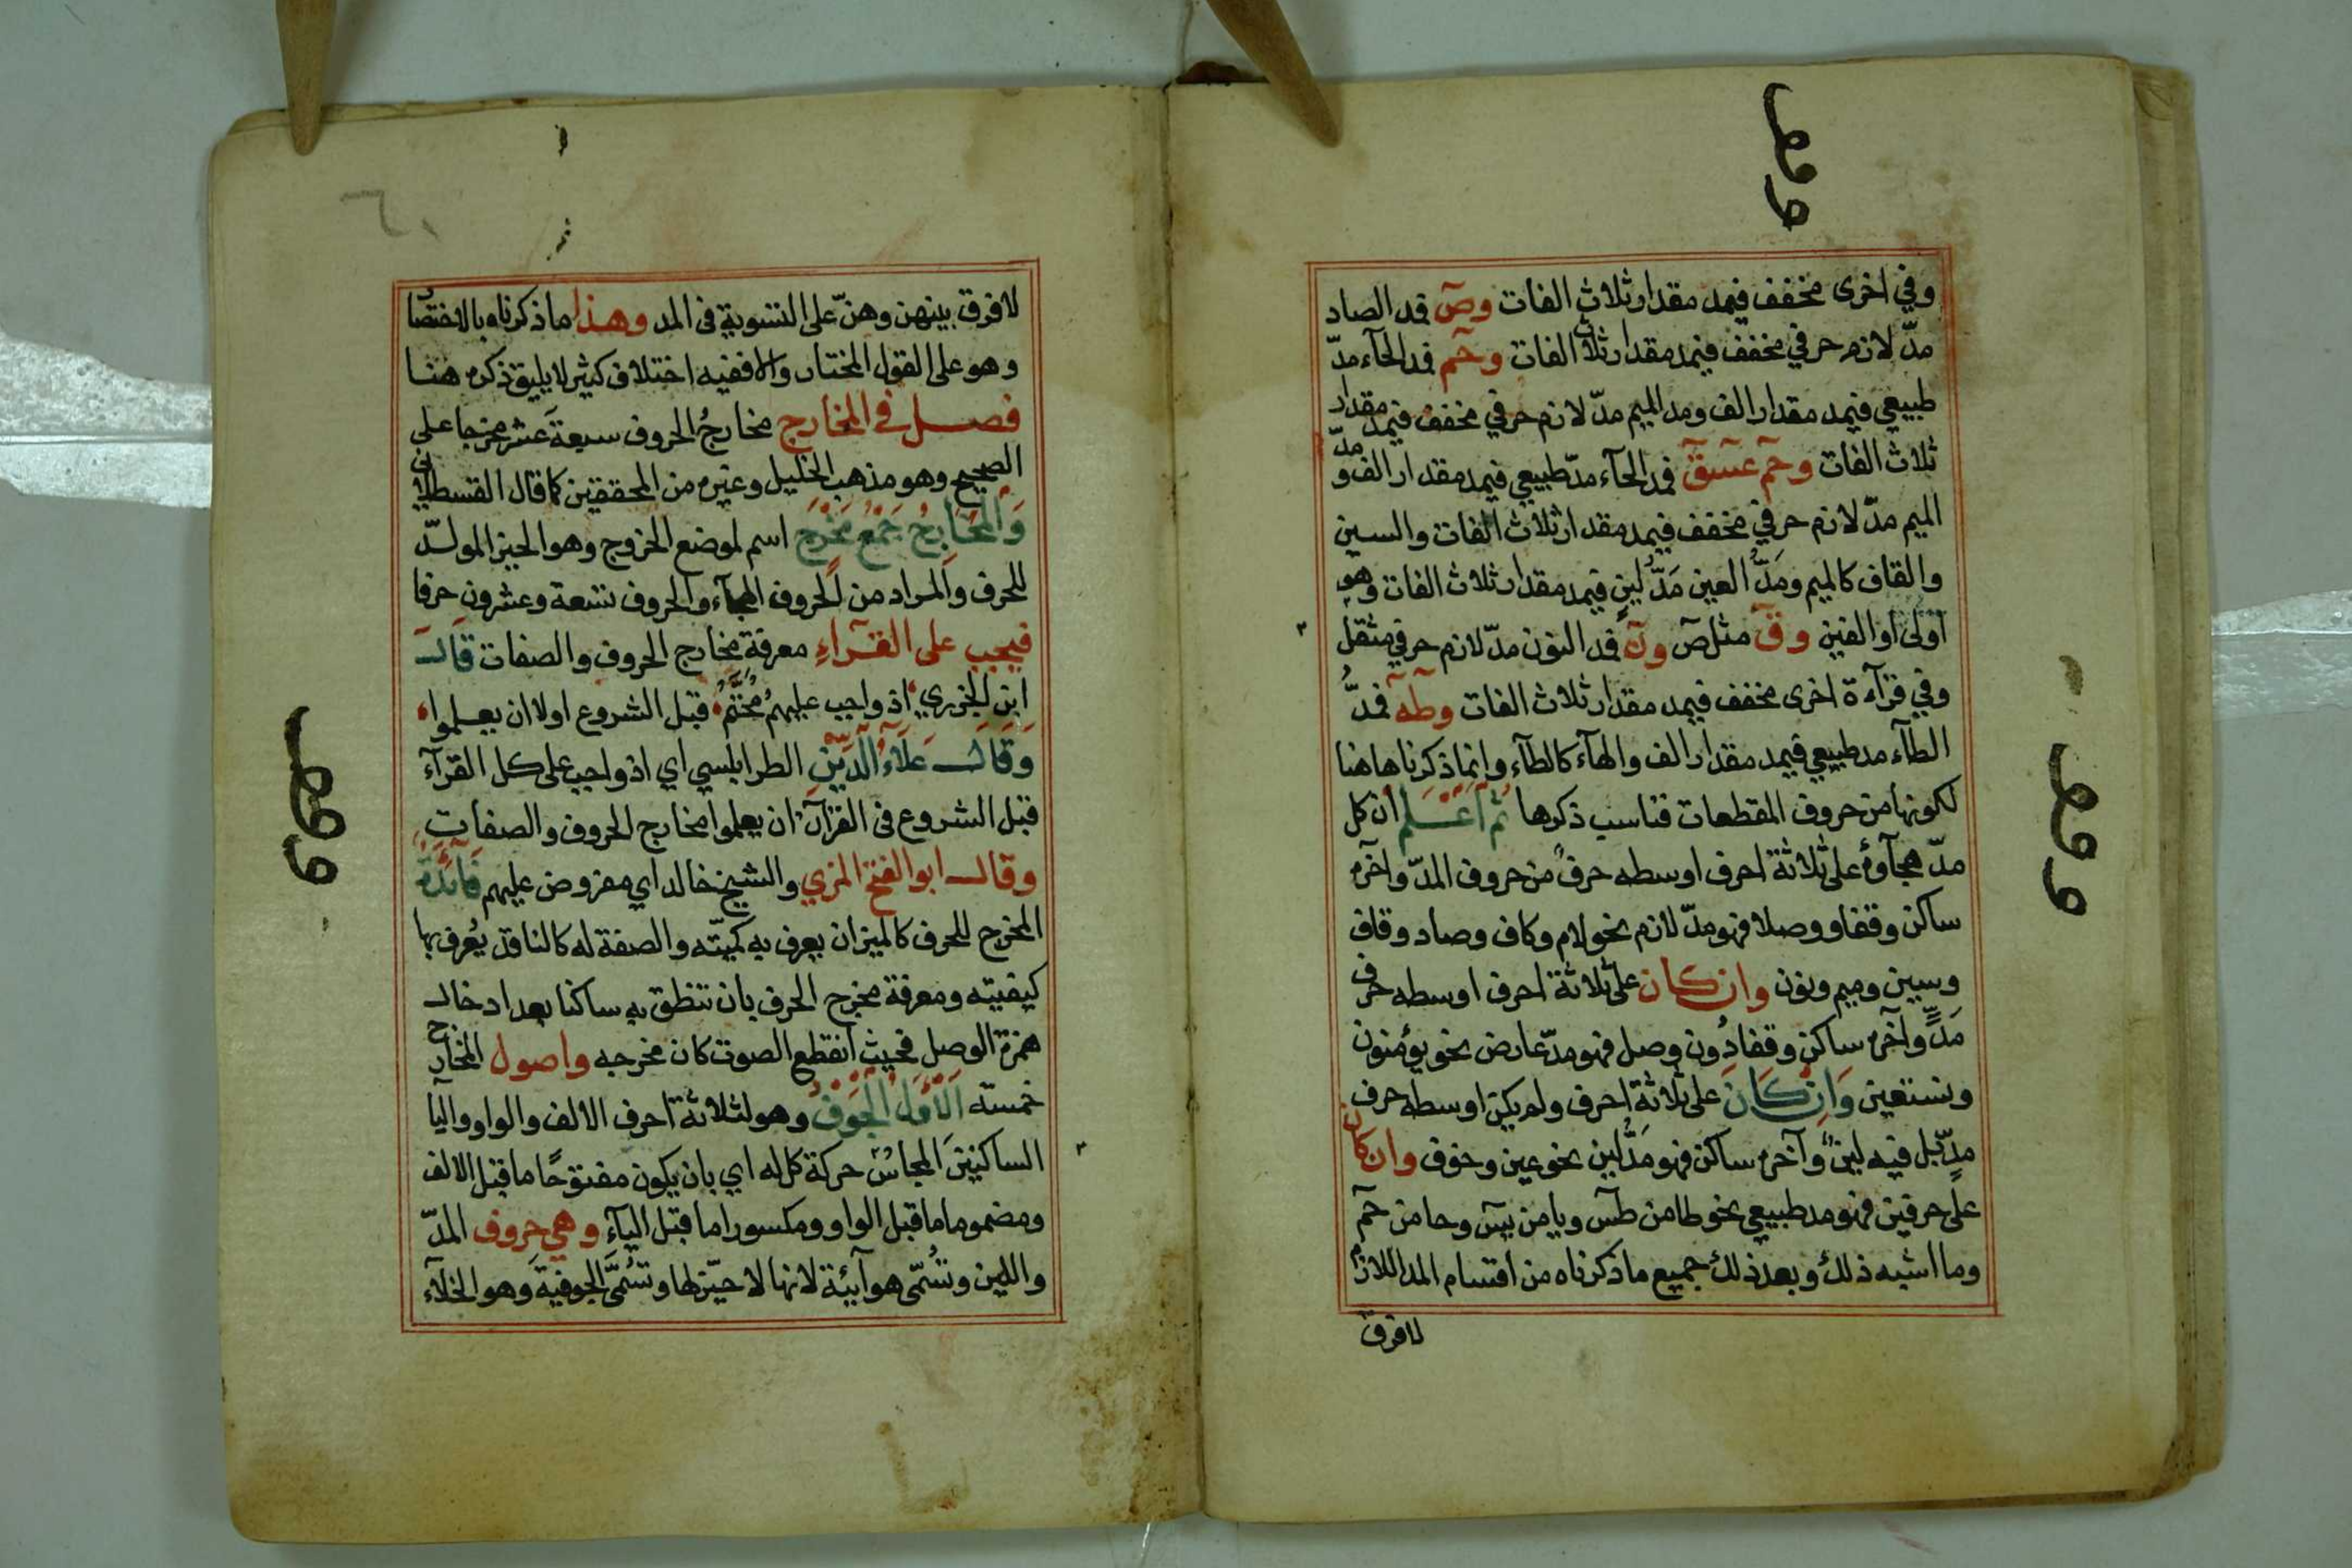 وقف
وفي اخرى مخفف فيمد مقدار ثلاث الفات وصۤ فمد الصاد
مدّ لازم حرفي مخفف فيمد مقدار ثلاث الفات وحمۤ فمد الحآء مدّ
طبيعي فيمد مقدار الف ومد الميم مدّ لازم حرفي مخفف فيمد مقدار
ثلاث الفات وحمۤ عسۤقۤ فمد الحآء مدّ طبيعي فيمد مقدار الف و مدّ
الميم مدّ لازم حرفي مخفف فيمد مقدار ثلاث الفات والسين
والقاف كالميم ومَدُّ العين مَدُّ لينٍ فيمد مقدار ثلاث الفات وهو
اولى او الفين وقۤ مثل صۤ ونۤ فمد النون مدّ لازم حرفي مثقل
وفي قرآءة اخرى مخفف فيمد مقدار ثلاث الفات وطه فمدُّ
الطآء مد طبيعي فيمد مقدار الف والهآء كالطآء وانما ذكرناها هنا
لكونها من حروف المقطعات فناسب ذكرها ثم اعلم ان كل
مدّ هجآوه على ثلاثة احرف اوسطه حرف من حروف المدّ وآخره
ساكن وقفا ووصلا فهو مدّ لازم نحو لام وكاف وصاد وقاف
وسين وميم ونون وان كان على ثلاثة احرف اوسطه حرف
مَدٍّ وآخره ساكن وقفا دُون وصل فهو مدّ عارض نحو يؤمنون
ونستعين وَانْ كَانَ على ثلاثة احرف ولم يكن اوسطه حرف
مدٍّ بل فيه لين وآخره ساكن فهو مَدُّ لين نحو عين وخوف وان كان
على حرفين فهو مد طبيعي نحو طا من طسۤ ويا من يسۤ وحا من حمۤ
وما اشبه ذلك وبعد ذلك جميع ما ذكرناه من اقسام المد اللازم
لا فرق
وقف
لا فرق بينهن وهنّ على التسوية في المد وهذا ما ذكرناه بالاختصار
وهو على القول المختار والا ففيه اختلاف كثير لا يليق ذكره هنا
فصل في المخارج مخارجُ الحروف سبعةَ عشر مخرجا على
الصحيح وهو مذهب الخليل وغيره من المحققين كما قال القسطلاني
وَالْمَخَارِجُ جَمْعُ مَخْرَج اسم لموضع الخروج وهو الحيز المولّد
للحرف والمراد من الحروف الهجاء والحروف تسعة وعشرون حرفا
فيجب على القرآء معرفة مخارج الحروف والصفات قال
ابن الجزري اذ واجب عليهمُ مُحَتَّمُ قبل الشروع اولا ان يعلموا
وَقَالَ عَلَآءُ الدِّينِ الطرابلسي اي اذ واجب على كل القرآء
قبل الشروع في القرآن ان يعلموا مخارج الحروف والصفات
وقال ابو الفتح المزي والشيخ خالد اي مفروض عليهم فَائِدَةٌ
المخرج للحرف كالميزان يعرف به كميّته والصفة له كالناقد يُعرف بها
كيفيته ومعرفة مخرج الحرف بان تنطق به ساكنا بعد ادخال
همزة الوصل فحيث انقطع الصوت كان مخرجه واصول المخارج
خمسة اَلْاَوَّلُ الْجَوْفُ وهو لثلاثة احرف الالف والواو واليا
الساكنين المجانس حركة كل له اي بان يكون مفتوحًا ما قبل الالف
ومضموما ما قبل الواو ومكسورا ما قبل اليآء وهي حروف المدّ
واللين وتُسمّى هوآئية لانها لا حيّز لها وتُسمَّى الجوفية وهو الخلآء
وقف